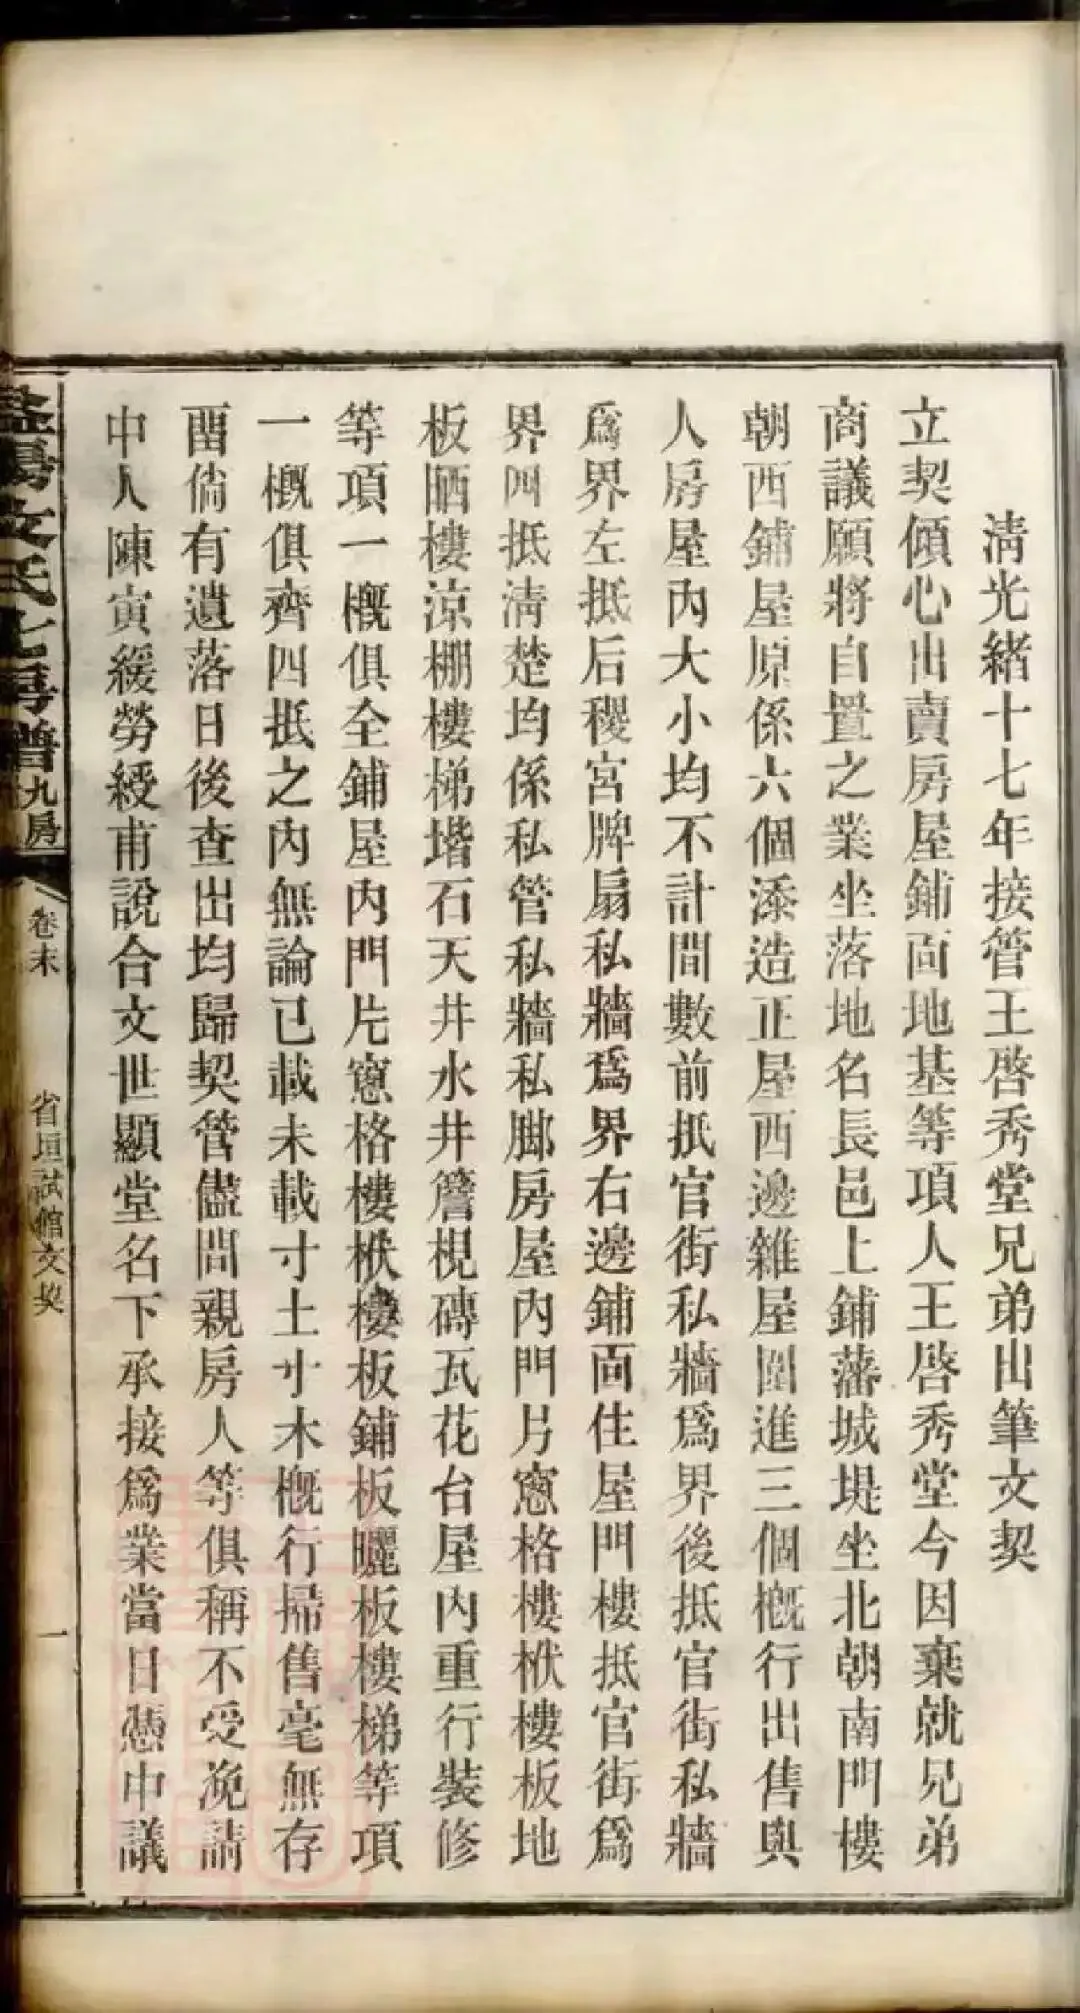 清光緒十七年接管王啓秀堂兄弟出筆文契
立契傾心出賣房屋鋪面地基等項人王啓秀堂今因棄就兄弟
商議願將自置之業坐落地名長邑上鋪藩城堤坐北朝南門樓
朝西鋪屋原係六個添造正屋西邊雜屋圍進三個概行出售與
人房屋內大小均不計間數前抵官街私牆爲界後抵官街私牆
爲界左抵后稷宮牌扇私牆爲界右邊鋪面住屋門樓抵官街爲
界四抵清楚均係私管私牆私脚房屋內門片窻格樓栿樓板地
板晒樓涼棚樓梯堦石天井水井簷梘磚瓦花台屋內重行裝修
等項一概俱全鋪屋內門片窻格樓栿樓板鋪板曬板樓梯等項
一概俱齊四抵之內無論已載未載寸土寸木概行掃售毫無存
畱倘有遺落日後查出均歸契管儘問親房人等俱稱不受浼請
中人陳寅緩勞綬甫說合文世顯堂名下承接爲業當日憑中議
益陽文氏七房譜九房
卷末
省垣試館文契
一